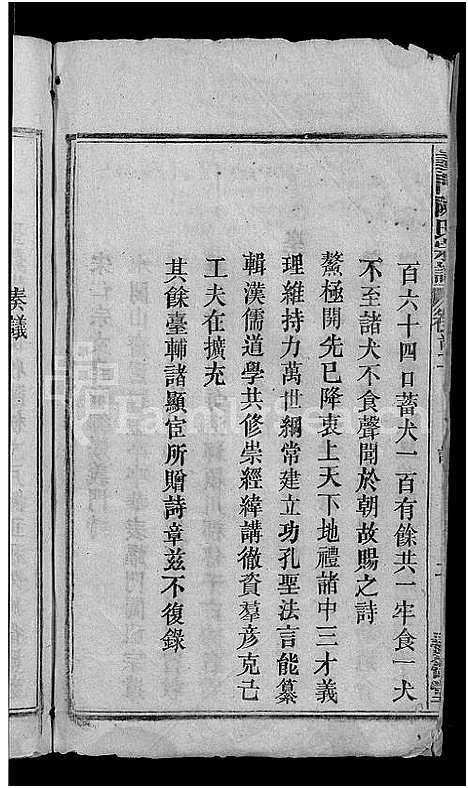 義門陳氏宗譜
卷首
百六十四口蓄犬一百有餘共一牢食一犬
不至諸犬不食聲聞於朝故賜之詩
鰲極開先已降衷上天下地禮諸中三才義
理維持力萬世綱常建立功孔聖法言能纂
輯漢儒道學共修崇經緯講徹資羣彦克己
工夫在擴充
其餘臺輔諸顯宦所贈詩章茲不復錄
奏議